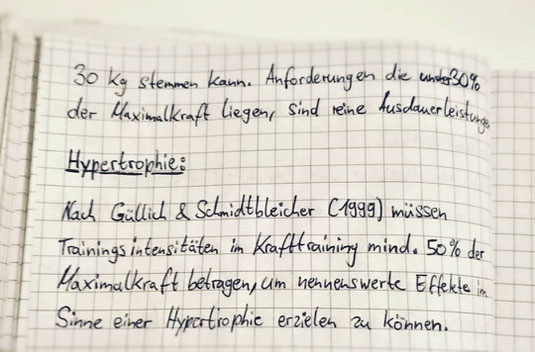 30 kg stemmen kann. Anforderungen die unter 30%
der Maximalkraft liegen, sind reine Ausdauerleistungen
Hypertrophie:
Nach Güllich & Schmidtbleicher (1999) müssen
Trainingsintensitäten im Krafttraining mind. 50% der
Maximalkraft betragen, um nennenswerte Effekte im
Sinne einer Hypertrophie erzielen zu können.